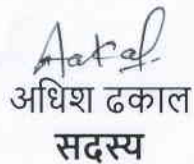 अधिश ढकाल
सदस्य